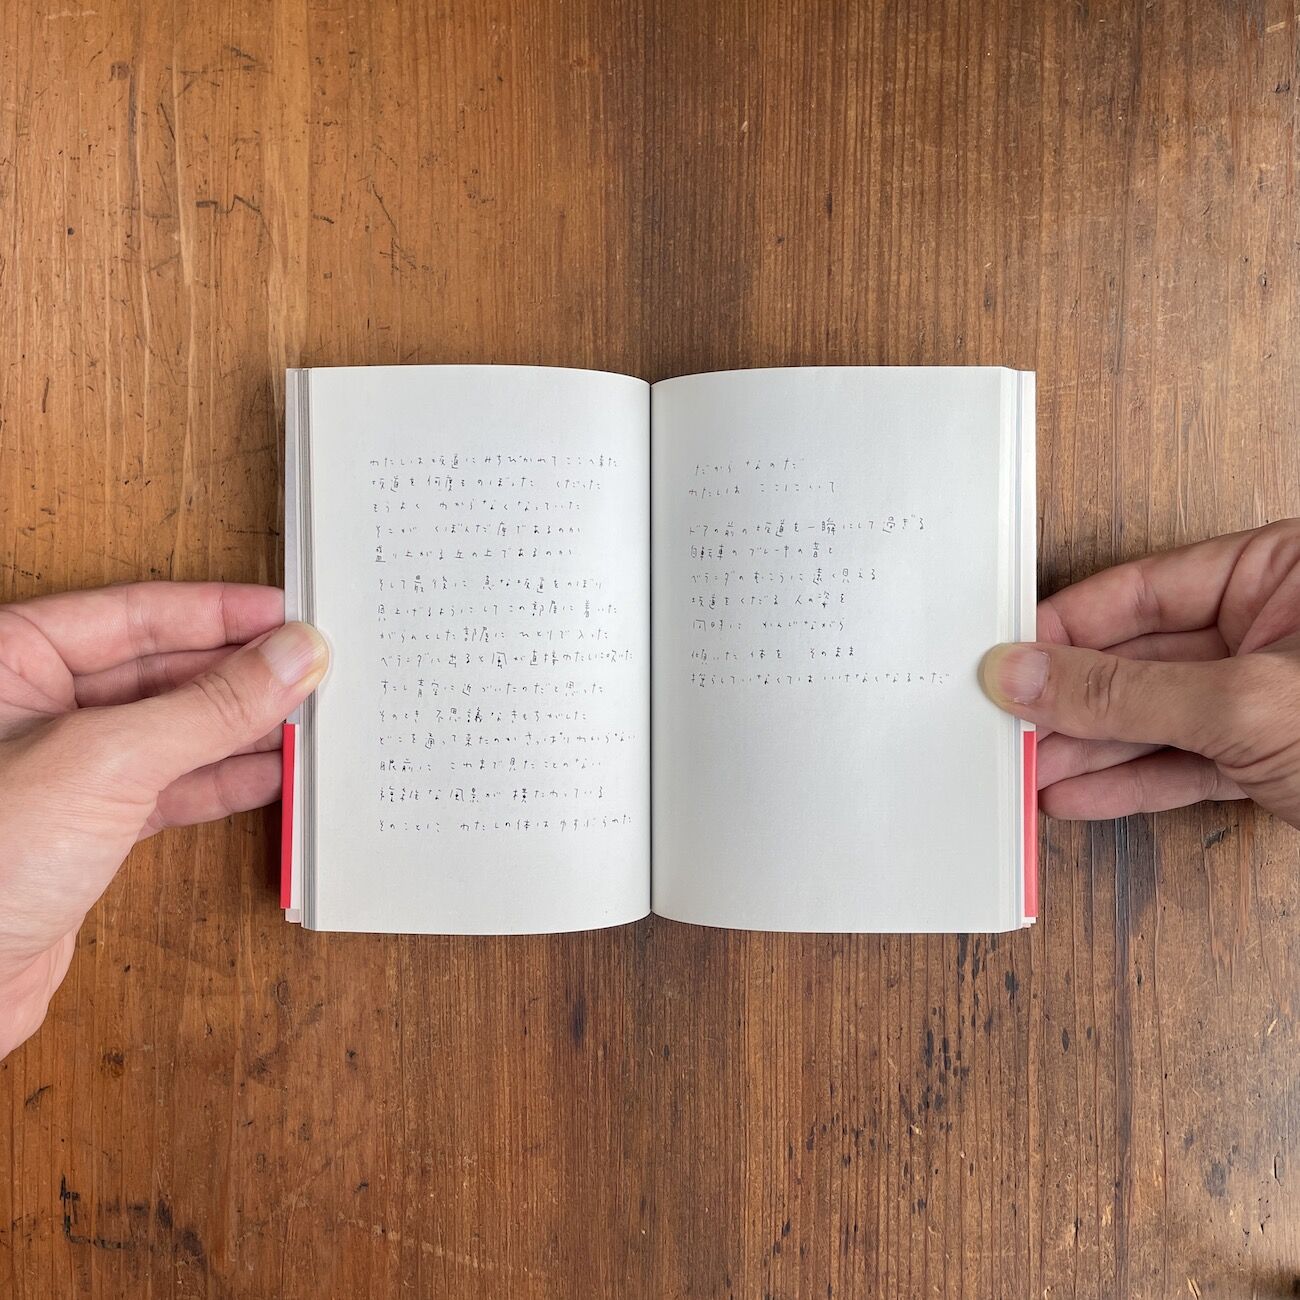 わたしは 坂道に みちびかれて ここへ来た
坂道を 何度も のぼった くだった
もうよく わからなくなっていた
そこが くぼんだ 底であるのか
盛り上がる 丘の上であるのか
そして最後に 急な坂道をのぼり
見上げるようにして この部屋に着いた
がらんとした部屋に ひとりで入った
ベランダに出ると 風が直接わたしに吹いた
すこし 青空に近づいたのだと思った
そのとき 不思議なきもちがした
どこを通って来たのか さっぱりわからない
眼前に これまで見たことのない
複雑な 風景が 横たわっている
そのことに わたしの体は ゆすぶられた
だから なのだ
わたしは ここにいて
ドアの前の坂道を 一瞬にして 過ぎる
自転車の ブレーキの音と
ベランダの むこうに 遠く見える
坂道をくだる 人の姿を
同時に かんじながら
傾いた 体を そのまま
揺らしていなくては いけなくなるのだ